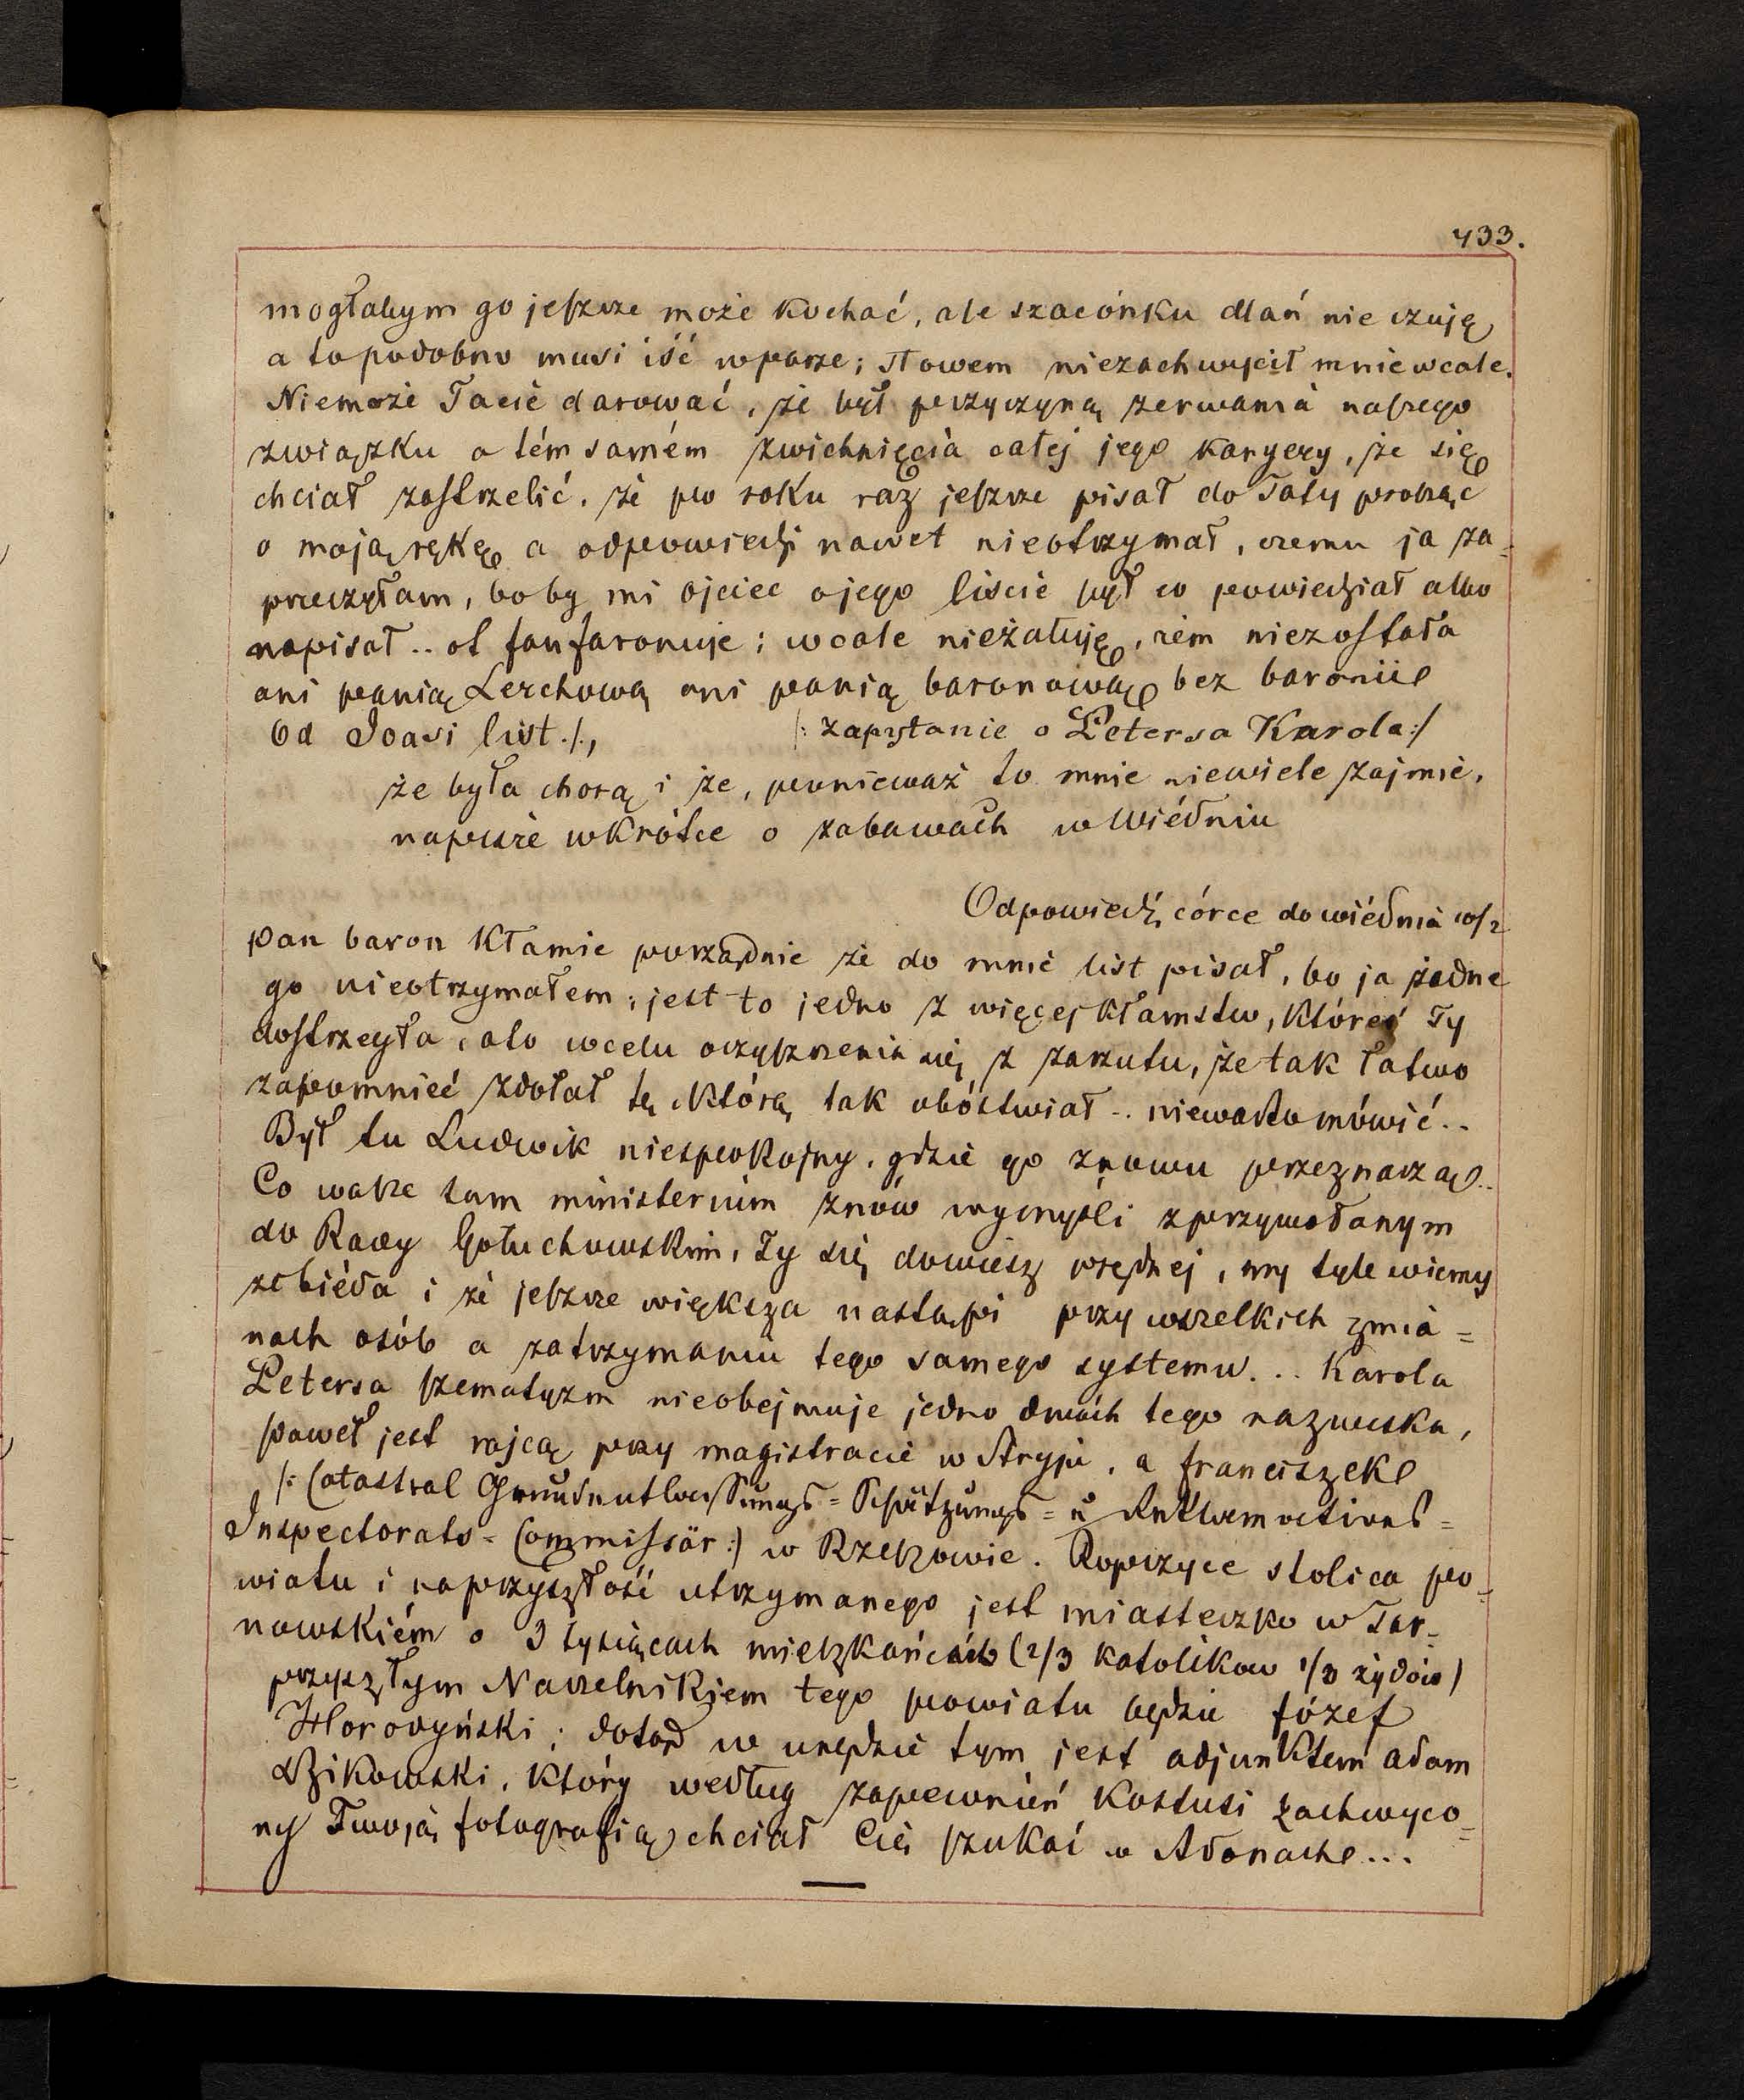 433.
mogłabym go jeszcze może kochać, ale szacónku dlań nie czuję
a to podobno musi iść w parze; słowem niezachwycił mnie wcale.
Niemoże Tacie darować, że był przyczyną zerwania naszego
związku a tém samém zwichnięcia całej jego karyery, że się
chciał zastrzelić, że po roku raz jeszcze pisał do Taty prosząc
o moją rękę a odpowiedzi nawet nieotrzymał, czemu ja za-
przeczyłam, boby mi ojciec o jego liście był co powiedział albo
napisał .. ot fanfaronuje; wcale nieżałuję, żem niezostała
ani panią Lerchową ani panią baronową bez baronii
Od Joasi list /., /: zapytanie o Petersa Karola :/
że była chorą i że, ponieważ to mnie niewiele zajmie,
napisze wkrótce o zabawach w Wiédniu
Odpowiedź córce do wiédnia 10/2
pan baron kłamie porządnie że do mnie list pisał, bo ja żadne
go nieotrzymałem; jest to jedno z więcej kłamstw, któreś Ty
dostrzegła, ato wcelu oczyszczenia się z zarzutu, że tak łatwo
zapomnieć zdołał tę którą tak ubóstwiał .. niewarto mówić..
Był tu Ludwik niespokojny, gdzie go znowu przeznaczą..
Co wasze tam ministerium znów wymyśli z przywołanym
do Rady Gołuchowskim, Ty się dowiesz prędzej, my tyle wiemy
że biéda i że jeszcze większa nastąpi przy wszelkich zmia=
nach osób a zatrzymaniu tego samego systemu... Karola
Petersa szematyzm nieobejmuje jedno dwóch tego nazwiska,
paweł jest rajcą przy magistracie w Stryju, a franciszek
/: Catastral Grundentlastungs = Schätzungs = u Reklamations=
Inspectorats = Commissär :/ w Rzeszowie. Ropczyce stolica po-
wiatu i naprzyszłość utrzymanego jest miasteczko w Tar-
nowskiém o 3 tysiącach mieszkańców (2/3 katolikow 1/3 żydów)
przyszłym Naczelnikiem tego powiatu będzie józef
Horodyński; dotąd w urzędzie tym jest adjunktem adam
Dzikowski, który według zapewnień Kostusi zachwyco=
ny Twoją fotografią chciał Cię szukać w